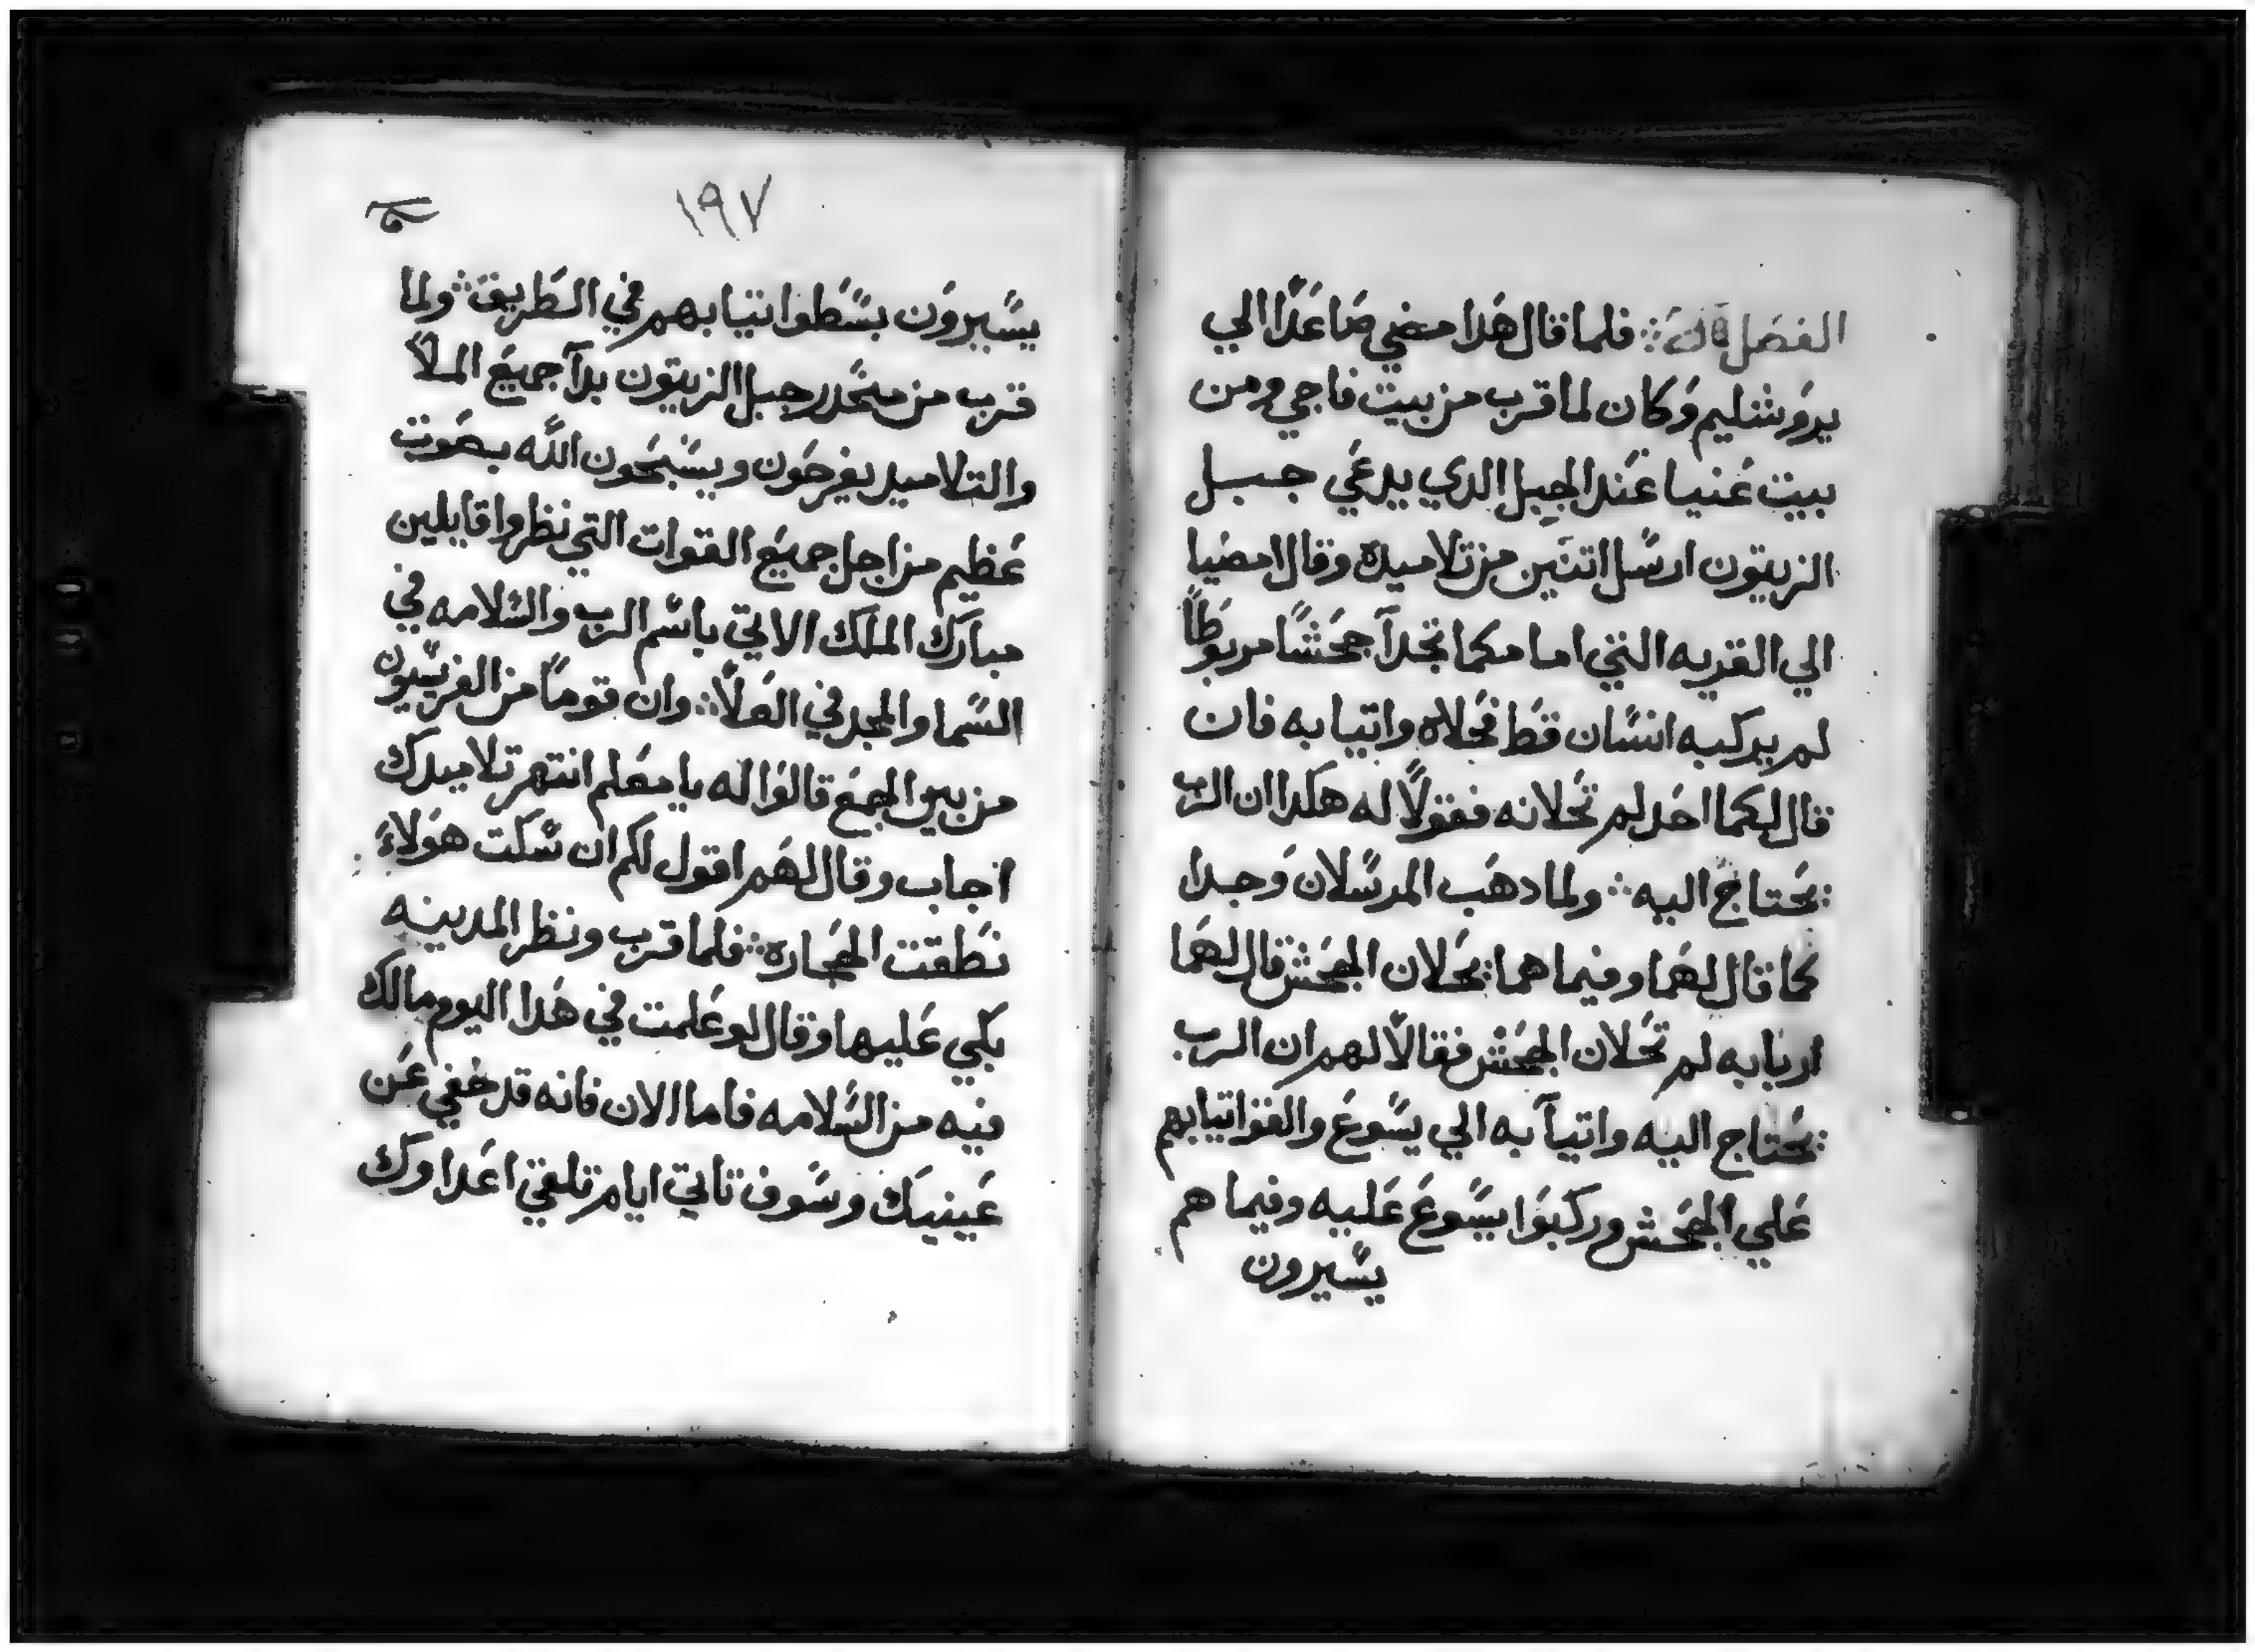 الفصل
فلما قال هدا مضي صاعدًا الي
يروشليم وكان لما قرب من بيت فاجي ومن
بيت عنيا عند الجبل الدي يدعي جبل
الزيتون ارسل اتنين من تلاميده وقال امضيا
الي القريه التي امامكما تجدآ جحشًا مربوطًا
لم يركبه انسان قط فحلاه واتيا به فان
قال لكما احد لم تحلانه فقولًا له هكدا ان الرب
يحتاج اليه ∴ ولما دهب المرسلان وجدا
كما قال لهما وفيما هما يحلان الجحش قال لهما
اربابه لم تحلان الجحش فقالًا لهم ان الرب
يحتاج اليه واتيآ به الي يسوع والقوا تيابهم
علي الجحش وركبوا يسوع عليه وفيما هم
يسيرون
١٩٧
يسيرون بسطوا تيابهم في الطريق ∴ ولما
قرب من منحدر جبل الزيتون بدآ جميع الملاً
والتلاميد يفرحون ويسبحون الله بصوت
عظيم من اجل جميع القوات التي نظروا قايلين
مبارك الملك الاتي باسم الرب والسلامه في
السما والمجد في العلاً ∴ وان قومًا من الفريسيون
من بين الجمع قالوا له يا معلم انتهر تلاميدك
اجاب وقال لهم اقول لكم ان سكت هولاء
نطقت الحجاره ∴ فلما قرب ونظر المدينه
بكي عليها وقال لو علمت في هدا اليوم مالك
فيه من السلامه فاما الان فانه قد خفي عن
عينيك وسوف تاتي ايام تلقي اعداوك